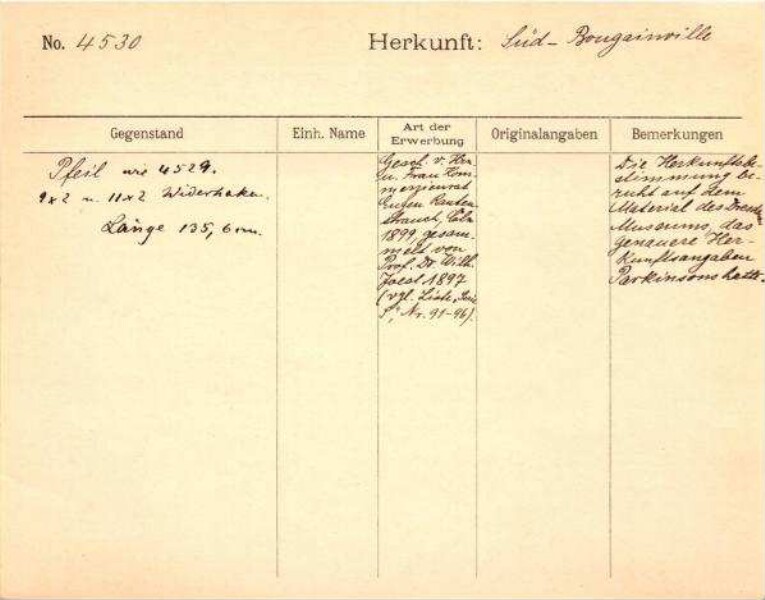 No. 4530
Herkunft: Süd-Bougainville
Gegenstand
Einh. Name
Art der
Erwerbung
Originalangaben
Bemerkungen
Pfeil wie 4529.
9x2 u. 11x2 Widerhaken.
Länge 135,6 cm.
Gesch. v. Herr
u. Frau Kom-
merzienrat
Eugen Rauten-
strauch, Cöln
1899, gesam-
melt von
Prof. Dr. Wilh.
Joest 1897
(vgl. Liste,
Nr. 91-96).
Die Herkunftsbe-
stimmung be-
ruht auf dem
Material des Dresdner
Museums, das
genauere Her-
kunftsangaben
Parkinsons hatte.